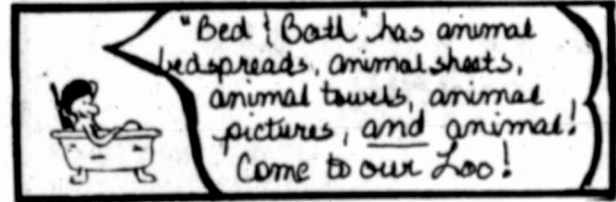 "Bed & Bath" has animal
bedspreads, animal sheets,
animal towels, animal
pictures, and animal!
Come to our Loo!